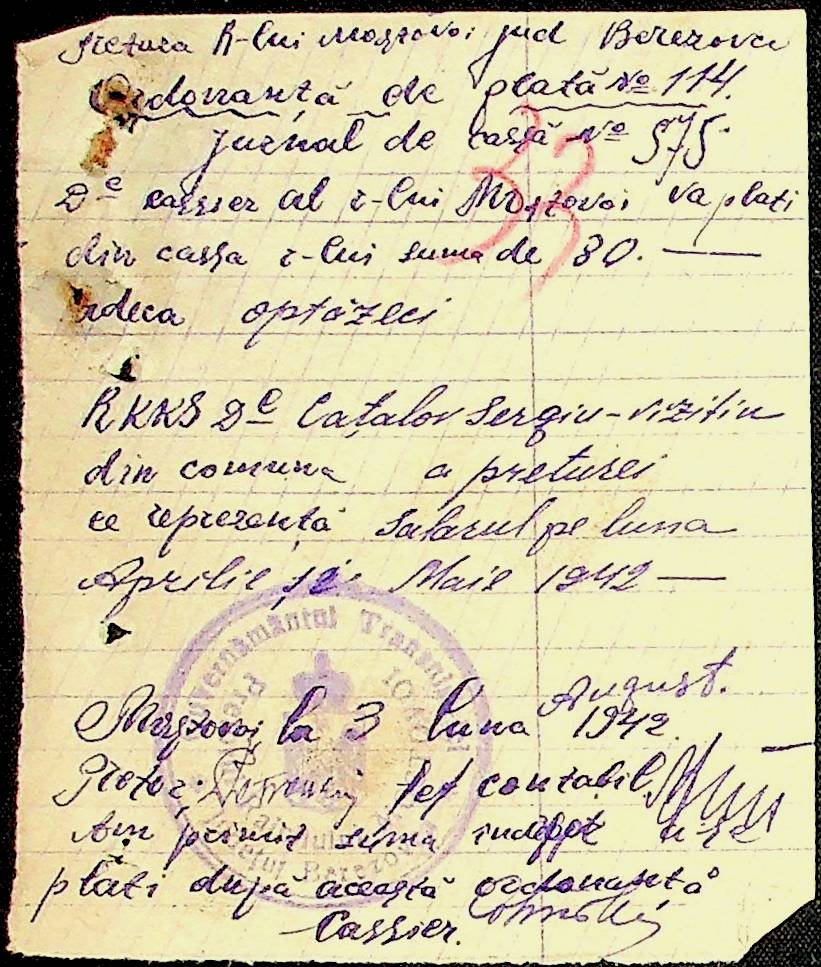 Pretura R-lui Mostovoi jud Berezovca
Ordonanță de plată № 114.
jurnal de cassă № 575.
33
Dl cassier al r-lui Mostovoi va plati
din cassa r-lui suma de 80. —
adeca optăzeci
Dl Cațalov Sergiu - vizitiu
din comuna a preturei
ce reprezentă salarul pe luna
Aprilie și Maie 1942 —
Guvernământul Transnis
Mostovoi la 3 luna August. 1942
Pretor. șef contabil.
Am primit suma
plati după această ordonanță
Cassier.
Județul Berezovca